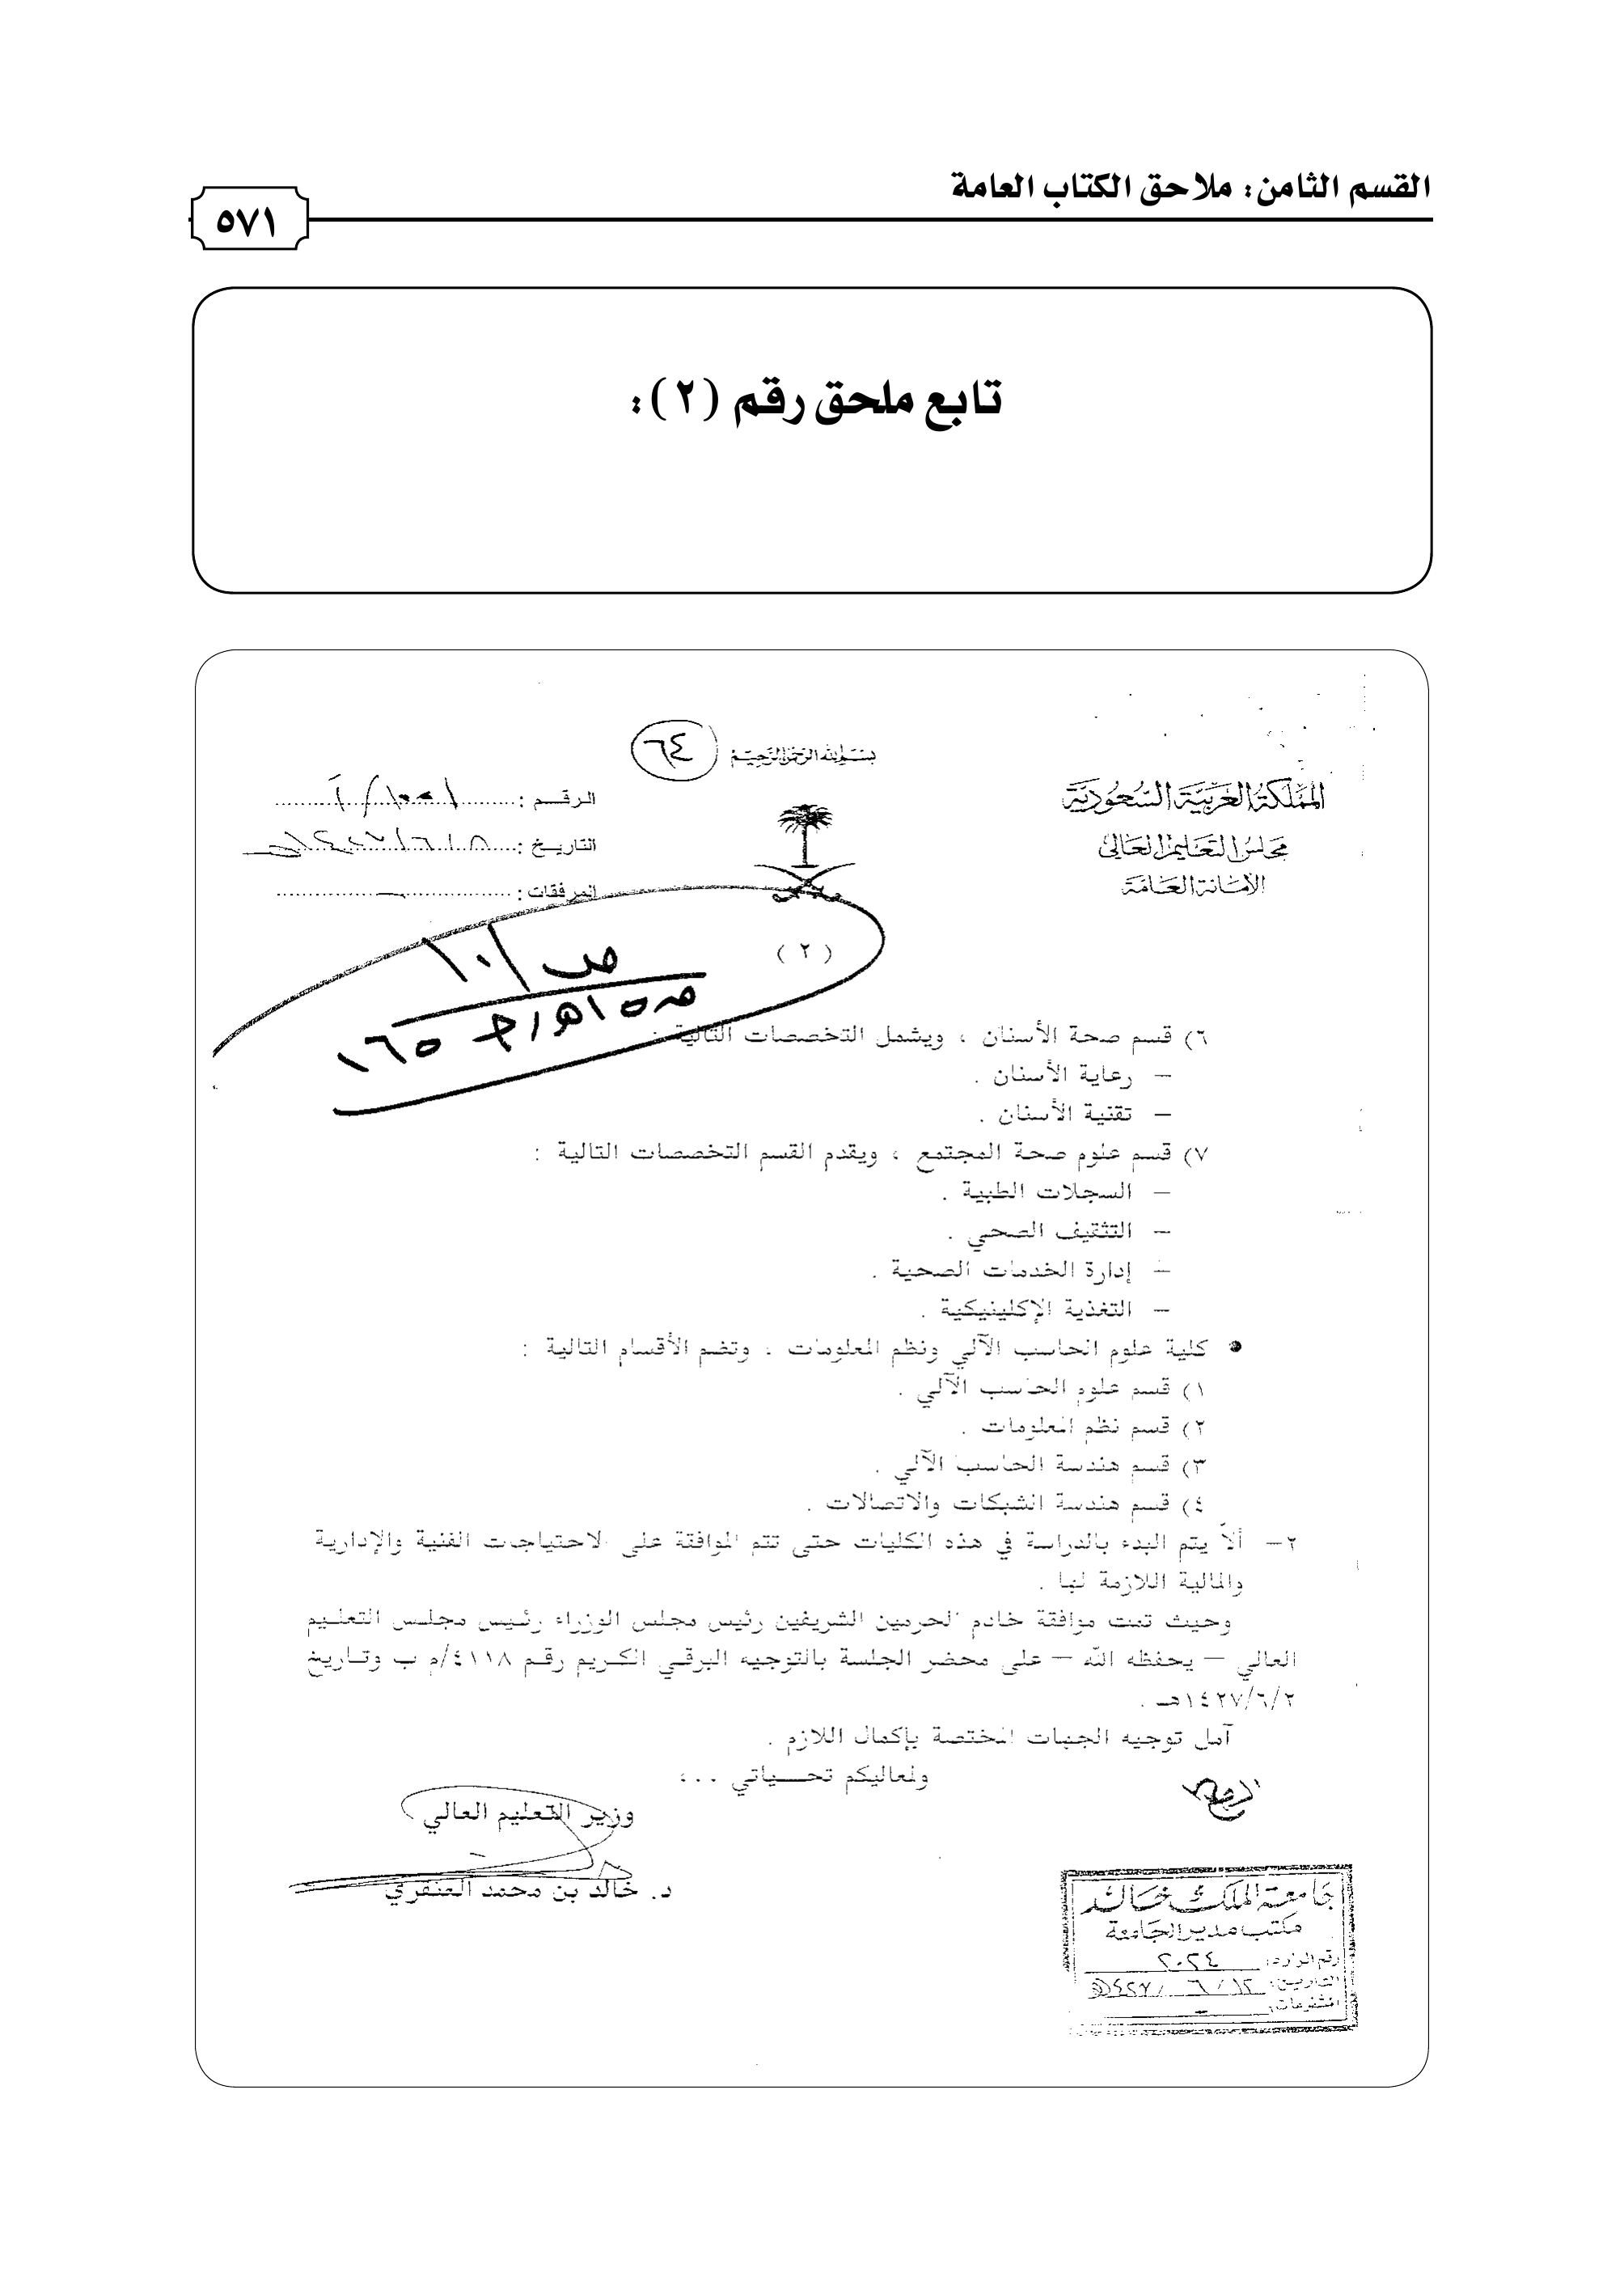 القسم الثامن: ملاحق الكتاب العامة
٥٧١
تابع ملحق رقم (٢):
بسم الله الرحمن الرحيم
٦٤
المملكة العربية السعودية
مجلس التعليم العالي
الأمانة العامة
الرقم :
التاريخ : ١٤٢٧/٦/٥هـ
المرفقات :
(٢)
٦) قسم صحة الأسنان ، ويشمل التخصصات التالية :
– رعاية الأسنان .
– تقنية الأسنان .
٧) قسم علوم صحة المجتمع ، ويقدم القسم التخصصات التالية :
– السجلات الطبية .
– التثقيف الصحي .
– إدارة الخدمات الصحية .
– التغذية الإكلينيكية .
● كلية علوم الحاسب الآلي ونظم المعلومات ، وتضم الأقسام التالية :
١) قسم علوم الحاسب الآلي .
٢) قسم نظم المعلومات .
٣) قسم هندسة الحاسب الآلي .
٤) قسم هندسة الشبكات والاتصالات .
٢– ألاّ يتم البدء بالدراسة في هذه الكليات حتى تتم الموافقة على الاحتياجات الفنية والإدارية
والمالية اللازمة لها .
وحيث تمت موافقة خادم الحرمين الشريفين رئيس مجلس الوزراء رئيس مجلس التعليم
العالي – يحفظه الله – على محضر الجلسة بالتوجيه البرقي الكريم رقم ٤١١٨/م ب وتاريخ
١٤٢٧/٦/٢هـ .
آمل توجيه الجهات المختصة بإكمال اللازم .
ولمعاليكم تحـــياتي ..،
وزير التعليم العالي
د. خالد بن محمد العنقري
جامعة الملك خالد
مكتب مدير الجامعة
رقم الوارد: ٢٠٢٤
التاريخ: ١٢/٦/١٤٢٧هـ
المشفوعات: